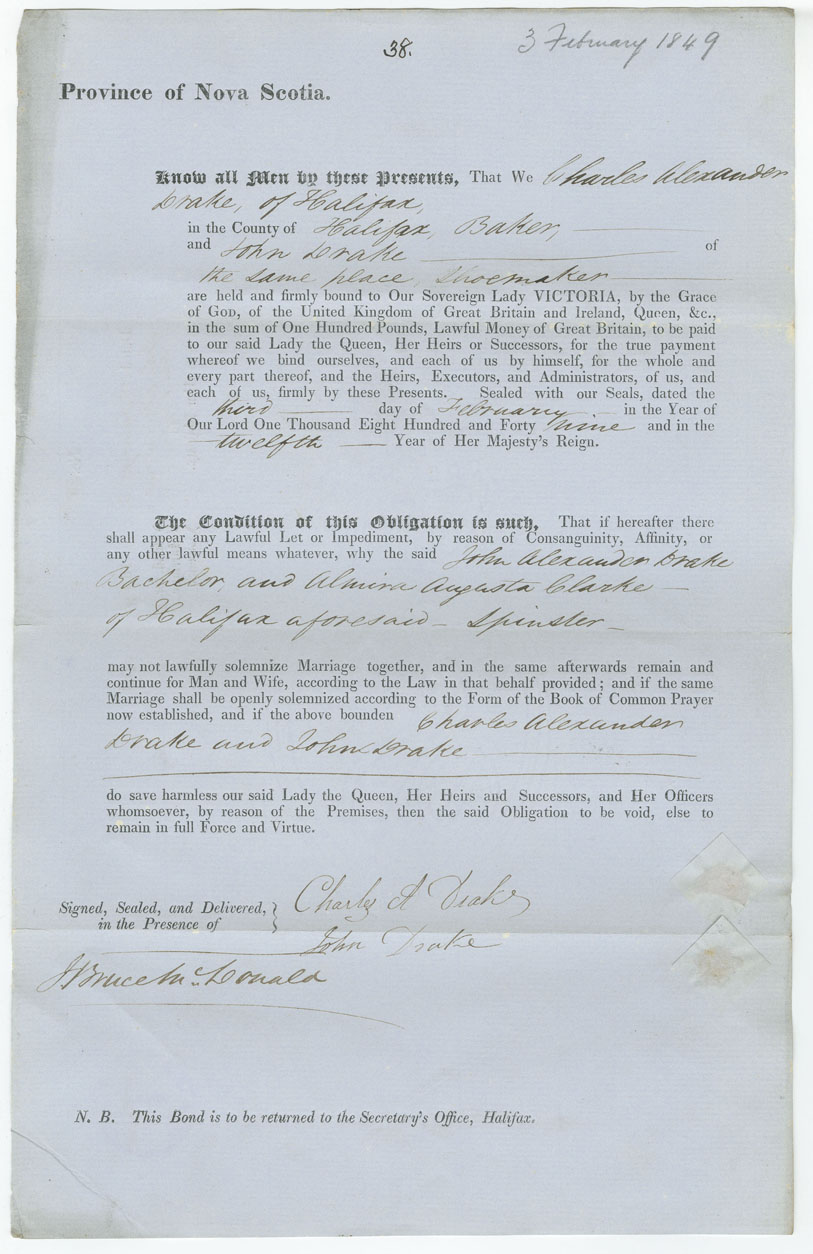 38.
3 February 1849
Province of Nova Scotia.
Know all Men by these Presents, That We Charles Alexander
Drake, of Halifax,
in the County of Halifax, Baker,
and John Drake of
the same place, Shoemaker
are held and firmly bound to Our Sovereign Lady VICTORIA, by the Grace
of GOD, of the United Kingdom of Great Britain and Ireland, Queen, &c.,
in the sum of One Hundred Pounds, Lawful Money of Great Britain, to be paid
to our said Lady the Queen, Her Heirs or Successors, for the true payment
whereof we bind ourselves, and each of us by himself, for the whole and
every part thereof, and the Heirs, Executors, and Administrators, of us, and
each of us, firmly by these Presents. Sealed with our Seals, dated the
third day of February, in the Year of
Our Lord One Thousand Eight Hundred and Forty nine and in the
twelfth Year of Her Majesty's Reign.
The Condition of this Obligation is such, That if hereafter there
shall appear any Lawful Let or Impediment, by reason of Consanguinity, Affinity, or
any other lawful means whatever, why the said John Alexander Drake
Bachelor, and Almira Augusta Clarke —
of Halifax aforesaid — Spinster —
may not lawfully solemnize Marriage together, and in the same afterwards remain and
continue for Man and Wife, according to the Law in that behalf provided; and if the same
Marriage shall be openly solemnized according to the Form of the Book of Common Prayer
now established, and if the above bounden Charles Alexander
Drake and John Drake
do save harmless our said Lady the Queen, Her Heirs and Successors, and Her Officers
whomsoever, by reason of the Premises, then the said Obligation to be void, else to
remain in full Force and Virtue.
Signed, Sealed, and Delivered, } Charles A Drake
in the Presence of
John Drake
J Bruce McDonald
N. B. This Bond is to be returned to the Secretary's Office, Halifax.